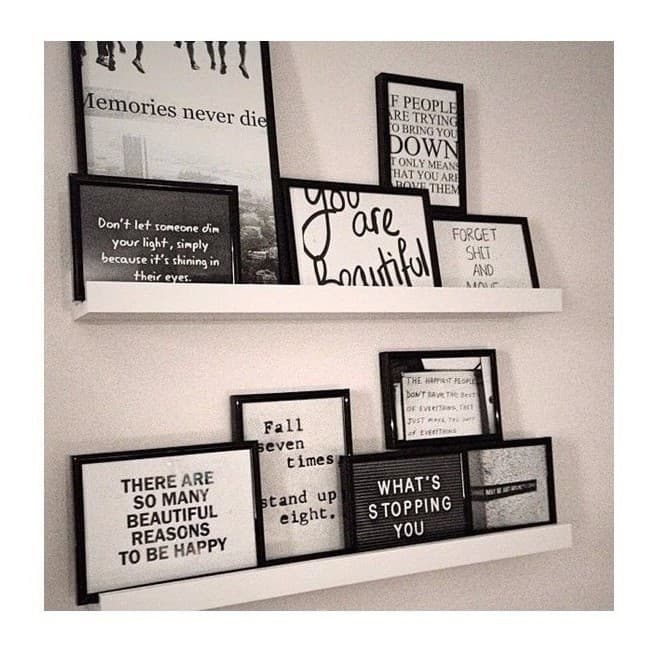 Memories never die
Don't let someone dim
your light, simply
because it's shining in
their eyes.
you
are
Beautiful
IF PEOPLE
ARE TRYING
TO BRING YOU
DOWN
IT ONLY MEANS
THAT YOU ARE
ABOVE THEM
FORGET
SHIT
AND
MOVE
THERE ARE
SO MANY
BEAUTIFUL
REASONS
TO BE HAPPY
Fall
seven
times
stand up
eight.
THE HAPPIEST PEOPLE
DON'T HAVE THE BEST
OF EVERYTHING, THEY
JUST MAKE THE BEST
OF EVERYTHING
WHAT'S
STOPPING
YOU